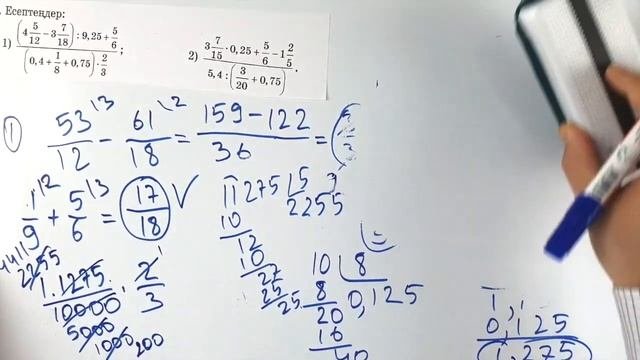 Есептеңдер:
1) (4 5/12 − 3 7/18) : 9,25 + 5/6 / (0,4 + 1/8 + 0,75) · 2/3 ;
2) 3 7/15 · 0,25 + 5/6 − 1 2/5 / 5,4 : (3/20 + 0,75) .
① 53/12 − 61/18 = 159 − 122 / 36 =
1/9 + 5/6 = 17/18 ✓
11275
10
12
10
27
25
25
2255
1.1275/10000 · 2/3
2255
5000
1000 200
10 8
8 0,125
20
16
40
0,125
1,275